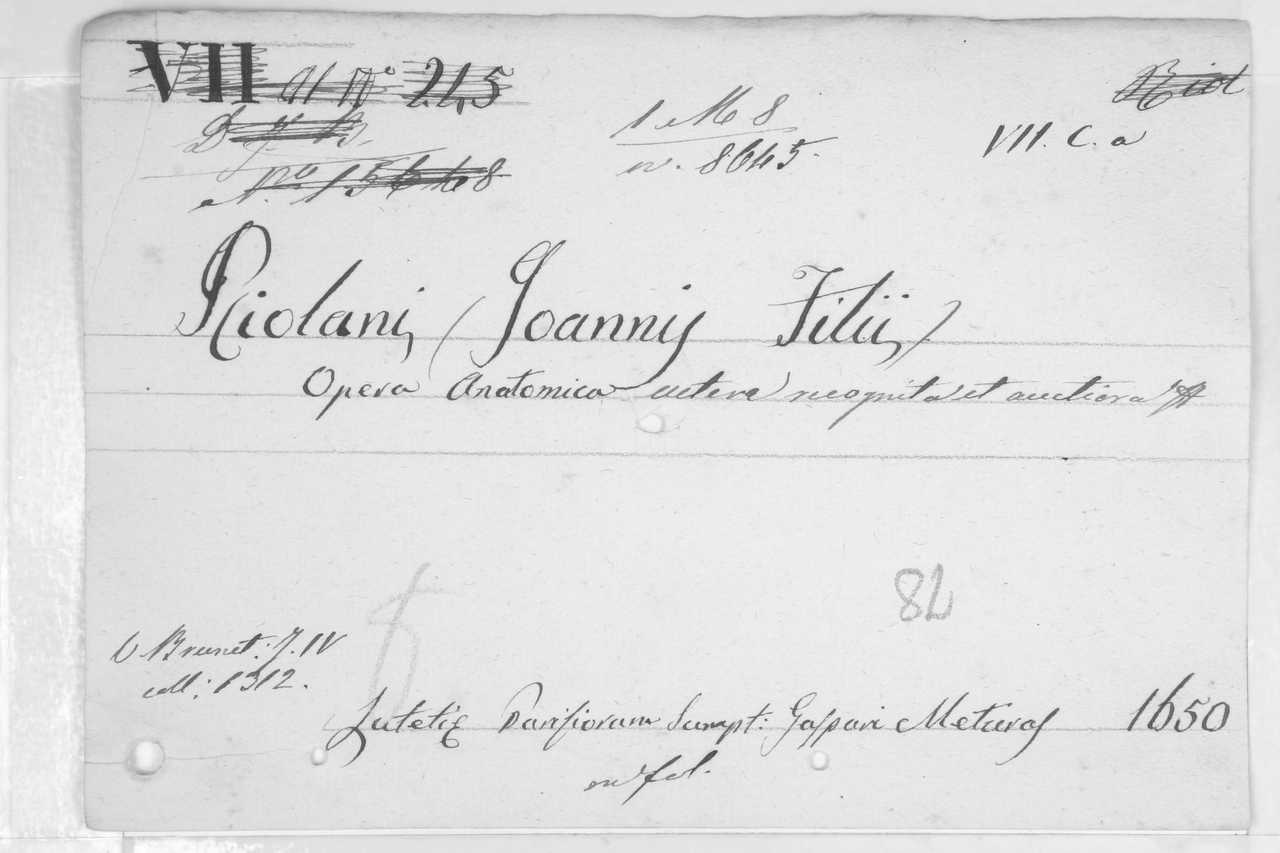 VII N° 245
VII. C. a
1 M 8
n. 8645.
N° 15648
Riolani (Joannis Filii)
Opera Anatomica vetera recognita et auctiora
82
V Brunet: T. IV
coll: 1312.
Lutetiæ Parisiorum Sumpt: Gaspari Meturas 1650
in fol.